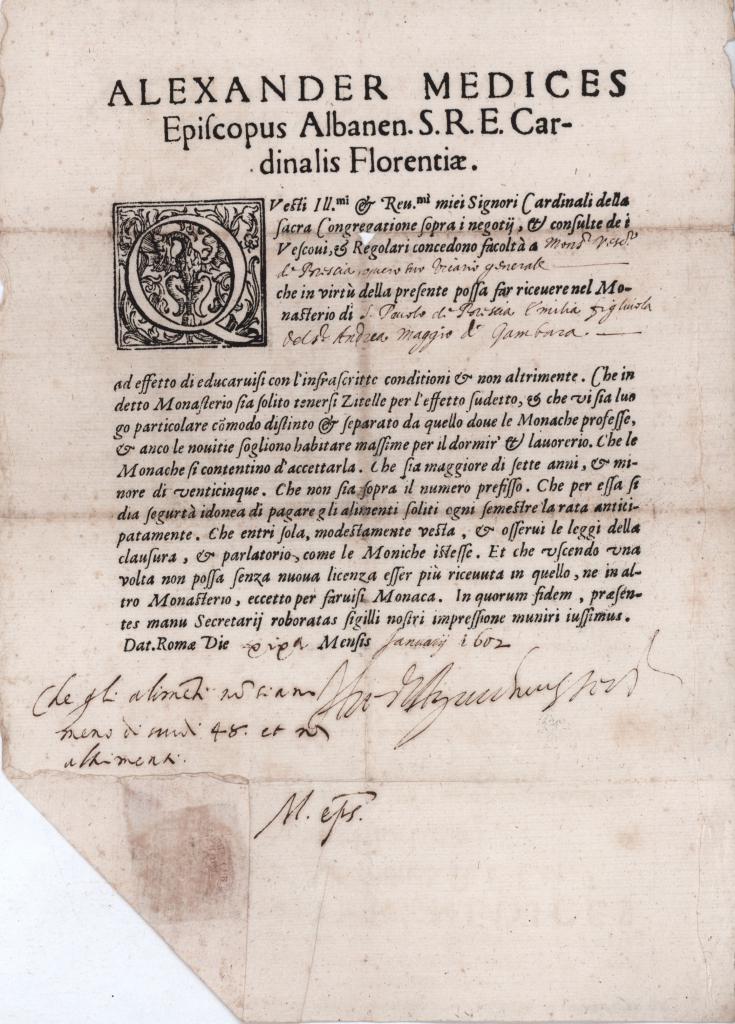 ALEXANDER MEDICES
Epiſcopus Albanen. S. R. E. Car-
dinalis Florentiæ.
QVeſti Ill.mi & Reu.mi miei Signori Cardinali della
ſacra Congregatione ſopra i negotij, & conſulte de i
Veſcoui, & Regolari concedono facoltà a Monsr Vescvo
di Brescia, overo suo Vicario generale
che in virtù della preſente poſſa far riceuere nel Mo-
naſterio di S. Paulo di Brescia Emilia figliuola
del Sr Andrea Maggio di Gambara.
ad effetto di educaruiſi con l'infraſcritte conditioni & non altrimente. Che in
detto Monaſterio ſia ſolito tenerſi Zitelle per l'effetto ſudetto, & che vi ſia luo
go particolare cõmodo diſtinto & ſeparato da quello doue le Monache profeſſe,
& anco le nouitie ſogliono habitare maſſime per il dormir' & lauorerio. Che le
Monache ſi contentino d'accettarla. Che ſia maggiore di ſette anni, & mi-
nore di venticinque. Che non ſia ſopra il numero prefiſſo. Che per eſſa ſi
dia ſegurtà idonea di pagare gli alimenti ſoliti ogni ſemeſtre la rata antici-
patamente. Che entri ſola, modeſtamente veſta, & oſſerui le leggi della
clauſura, & parlatorio, come le Moniche iſteſſe. Et che vſcendo vna
volta non poſſa ſenza nuoua licenza eſſer più riceuuta in quello, ne in al-
tro Monaſterio, eccetto per faruiſi Monaca. In quorum fidem, præſen-
tes manu Secretarij roboratas ſigilli noſtri impreſſione muniri iuſſimus.
Dat. Romæ Die xixa Menſis Januarij 1602
Che gli alimẽti nõ siano
meno di scudi 48. et nõ
altrimenti.
M. eps.